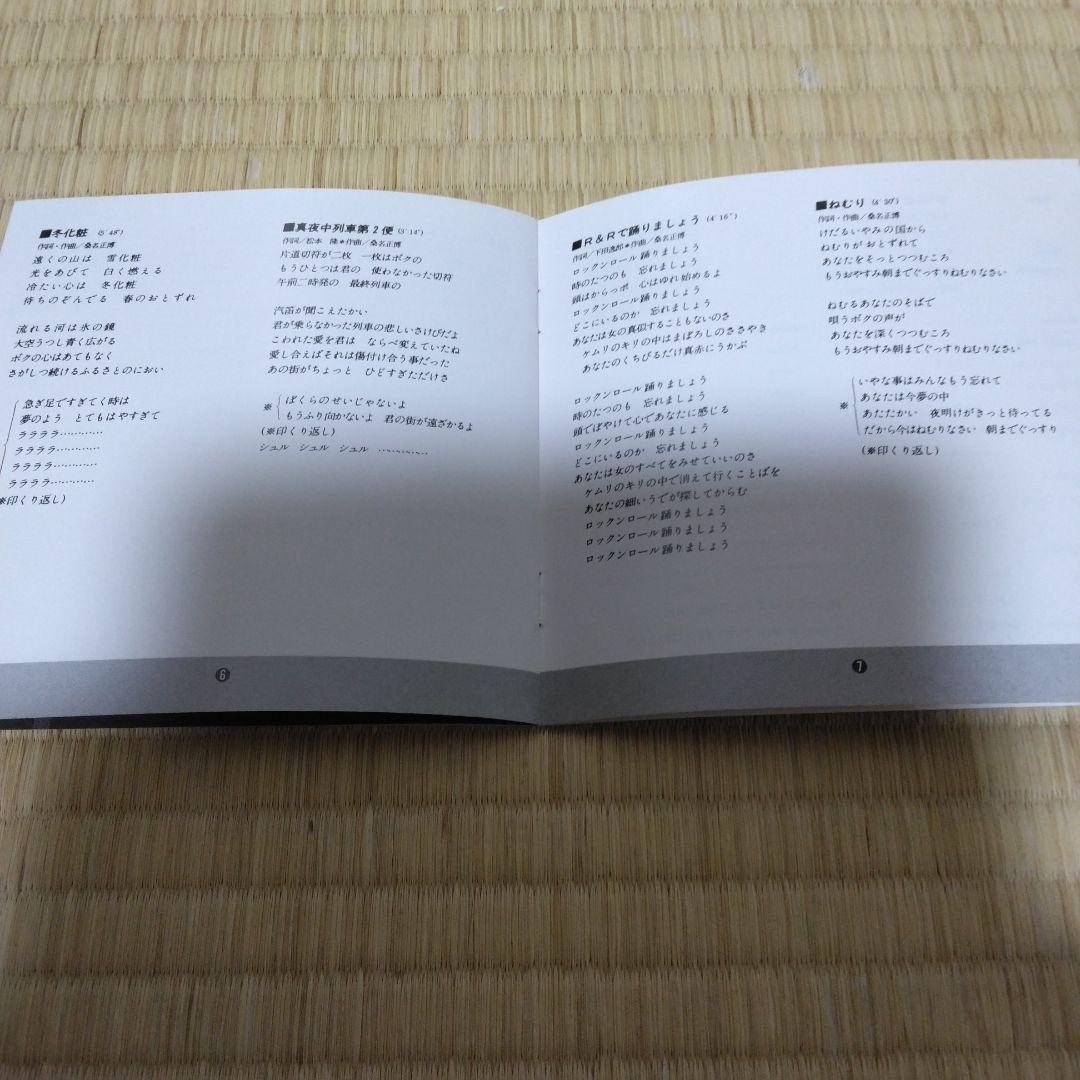 ■冬化粧 (5′48″)
作詞・作曲／桑名正博
遠くの山は 雪化粧
光をあびて 白く燃える
冷たい心は 冬化粧
待ちのぞんでる 春のおとずれ
流れる河は氷の鏡
大空うつし青く広がる
ボクの心はあてもなく
さがしつ続けるふるさとのにおい
急ぎ足ですぎてく時は
夢のよう とてもはやすぎて
ララララ…………
ララララ…………
ララララ…………
ララララ…………
※印くり返し)
■真夜中列車第2便 (3′14″)
作詞／松本 隆＊作曲／桑名正博
片道切符が二枚 一枚はボクの
もうひとつは君の 使わなかった切符
午前二時発の 最終列車の
汽笛が聞こえたかい
君が乗らなかった列車の悲しいさけびだよ
こわれた愛を君は ならべ変えていたね
愛し合えばそれは傷付け合う事だった
あの街がちょっと ひどすぎただけさ
※ ぼくらのせいじゃないよ
もうふり向かないよ 君の街が遠ざかるよ
(※印くり返し)
シュル シュル シュル …………
6
■R&Rで踊りましょう (4′16″)
作詞／下田逸郎＊作曲／桑名正博
ロックンロール踊りましょう
時のたつのも 忘れましょう
頭はからっポ 心はゆれ始めるよ
ロックンロール踊りましょう
どこにいるのか 忘れましょう
あなたは女の真似することもないのさ
ケムリのキリの中はまぼろしのささやき
あなたのくちびるだけ真赤にうかぶ
ロックンロール踊りましょう
時のたつのも 忘れましょう
頭でぼやけて心であなたに感じる
ロックンロール踊りましょう
どこにいるのか 忘れましょう
あなたは女のすべてをみせていいのさ
ケムリのキリの中で消えて行くことばを
あなたの細いうでが探してからむ
ロックンロール踊りましょう
ロックンロール踊りましょう
ロックンロール踊りましょう
■ねむり (4′30″)
作詞・作曲／桑名正博
けだるいやみの国から
ねむりがおとずれて
あなたをそっとつつむころ
もうおやすみ朝までぐっすりねむりなさい
ねむるあなたのそばで
唄うボクの声が
あなたを深くつつむころ
もうおやすみ朝までぐっすりねむりなさい
いやな事はみんなもう忘れて
あなたは今夢の中
※ あたたかい 夜明けがきっと待ってる
だから今はねむりなさい 朝までぐっすり
(※印くり返し)
7